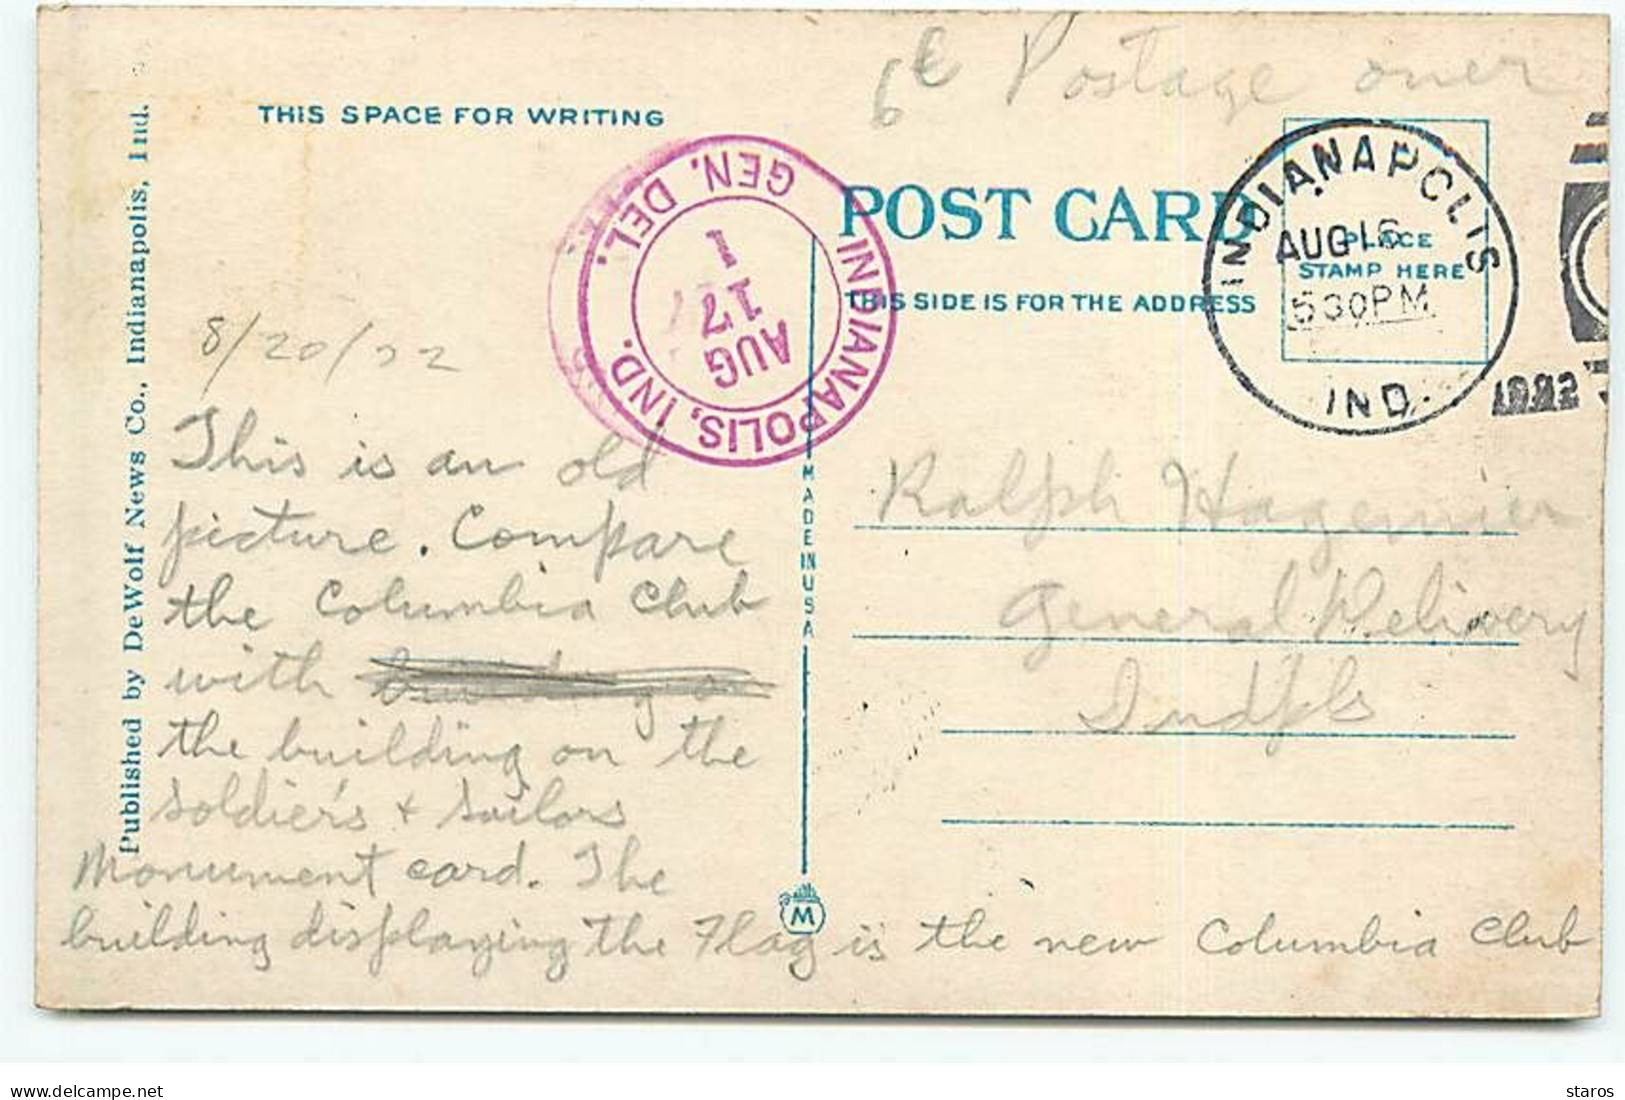 6¢ Postage over
THIS SPACE FOR WRITING
POST CARD
THIS SIDE IS FOR THE ADDRESS
PLACE
STAMP HERE
INDIANAPOLIS
AUG 16
530PM
IND.
INDIANAPOLIS, IND.
GEN. DEL.
AUG
17
1
8/20/22
This is an old
picture. Compare
the Columbia Club
with
the building on the
Soldier's + Sailors
Monument card. The
building displaying the Flag is the new Columbia Club
Ralph Hagemier
General Delivery
Indpls
Published by DeWolf News Co., Indianapolis, Ind.
MADE IN USA
M
delcampe.net
staros